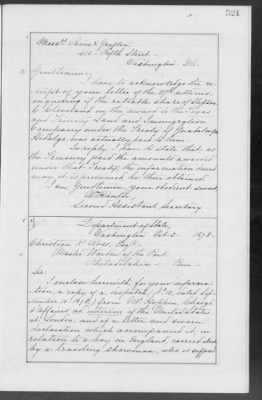 321
Messrs.
410 Fifth Street
Washington, D.C.
Gentlemen:
I have to acknowledge the re-
ceipt of your letter of the 27th ultimo,
inquiring if the ratable share of
C. Cleveland in the award to the Texas
and Trinity Land and Immigration
Company under the Treaty of Guadalupe
Hidalgo, was actually paid to him.
In reply, I have to state that, as
the Treasury paid the amounts awarded
under that Treaty, the information
may, it is presumed, be there obtained.
I am, Gentlemen, your obedient servant
W. Hunter,
Second Assistant Secretary.
Department of State,
Washington Oct. 2 1878.
Christian K. Ross, Esq.
Master Warden of the Port,
Philadelphia - Penn
Sir:
I enclose herewith for your informa-
tion, a copy of a despatch, dated Sept-
ember from Mr. Hoppin, Chargé
d'affaires ad interim of the United States
at London, and of a letter and sworn
declaration which accompanied it, in
relation to a boy in England, carried about
by a traveling showman, who is supposed